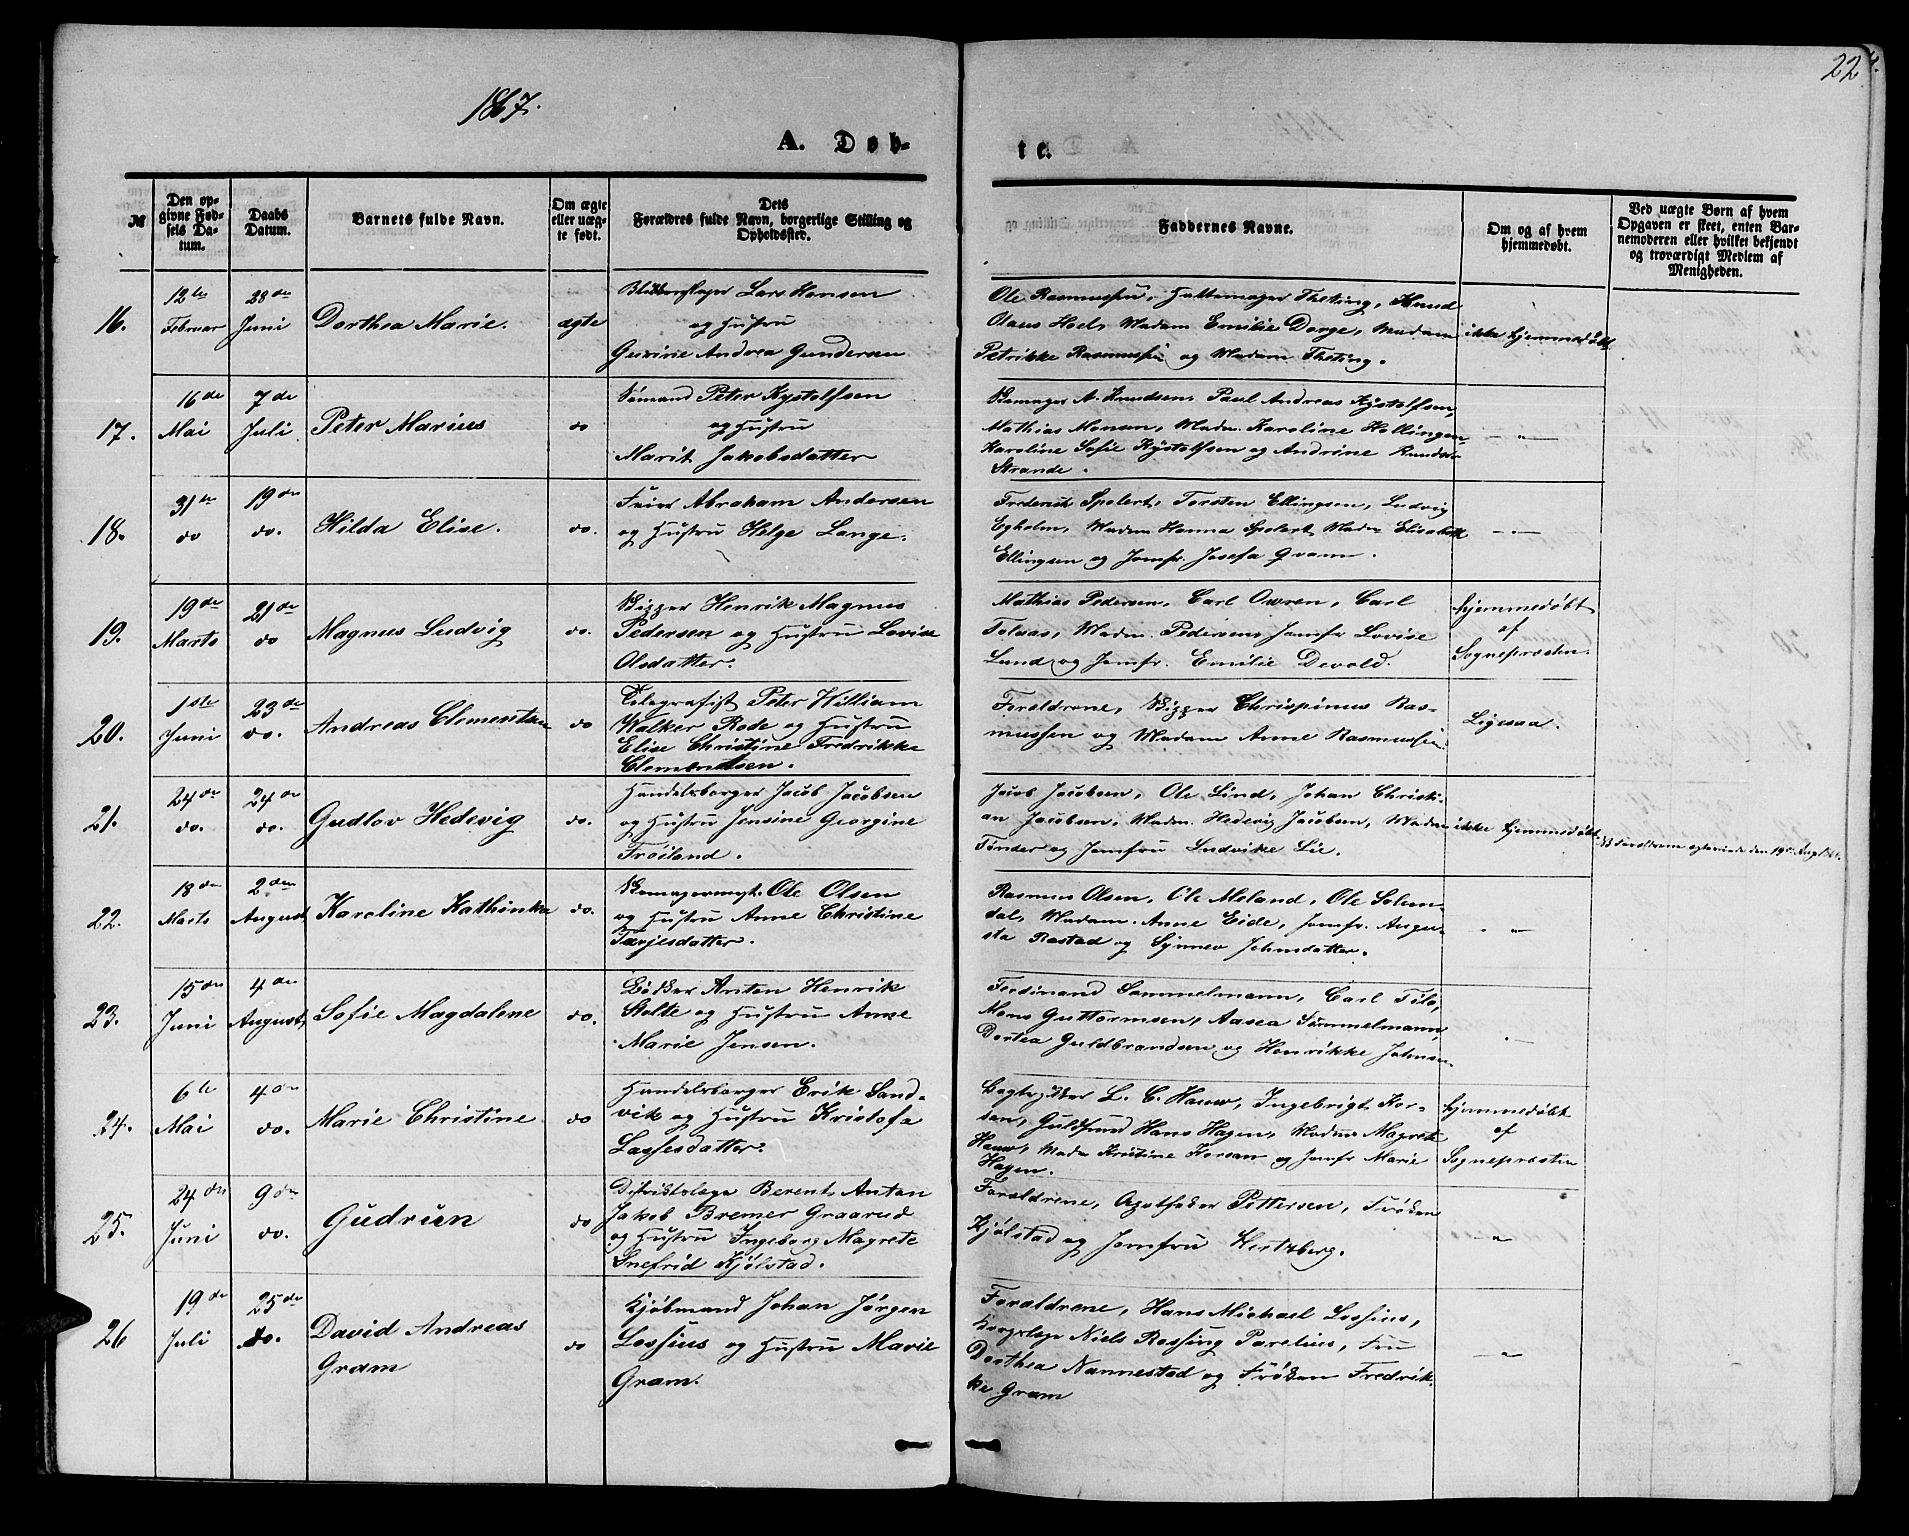 22
1867.
A. Døb-
te.
№
Den op-
givne Fød-
sels Da-
tum.
Daabs
Datum.
Barnets fulde Navn.
Om ægte
eller uæg-
te født.
Dets
Forældres fulde Navn, borgerlige Stilling og
Opholdssted.
Faddernes Navne.
Om og af hvem
hjemmedøbt.
Ved uægte Børn af hvem
Opgaven er skeet, enten Bar-
nemoderen eller hvilket bekjendt
og troværdigt Medlem af
Menigheden.
16.
12te
Februar
28de
Juni
Dorthea Marie.
ægte
Blikkenslager Lars Hansen
og Hustru
Gurine Andrea Gundersen
Ole Rasmussen, Hattemager Thesing, Knud
Olaus Hoel, Madam Emilie Dorge, Madam
Petrikke Rasmussen og Madam Thesing.
ikke hjemmedøbt
17.
16de
Mai
7de
Juli
Peter Marius
do
Sømand Peter Kystolfsen
og Hustru
Marit Jakobsdatter
A. Knudsen, Paul Andreas Kystolfsen,
Mathias Monsen, Madm. Karoline Hollingen
Karoline Sofie Kystolfsen og Andrine Knuds-
Strande.
— „ —
18.
31te
do
19de
do.
Hilda Elise.
do.
Feier Abraham Andersen
og Hustru Helge Lange.
Frederik Spolert, Torsten Ellingsen, Ludvig
Egholm, Madm Hanna Spolert, Madm Elisabeth
Ellingsen og Jomfr. Josefa Gram.
— „ —
19.
19de
Marts
21de
do
Magnus Ludvig
do.
Skipper Henrik Magnus
Pedersen og Hustru Lovise
Olsdatter.
Mathias Pedersen, Carl Owren, Carl
Tolsas, Madm. Pedersen, Jomfr Lovise
Lund og Jomfr. Emilie Devold.
hjemmedøbt
af
Sognepræsten.
20.
1ste
Juni
23de
do.
Andreas Clementsen
do
Telegrafist Peter William
Walker Rode og Hustru
Elise Christine Fredrikke
Clementsen.
Forældrene, Skipper Chrispinus Ras-
mussen og Madam Anne Rasmussen
Ligesaa.
21.
24de
do.
24de
do.
Gudlov Hedevig
do.
Handelsborger Jacob Jacobsen
og Hustru Jensine Georgine
Frøiland.
Jacob Jacobsen, Ole Lind, Johan Christi-
an Jacobsen, Madm. Hedevig Jacobsen, Madm
Tønder og Jomfru Ludvike Lie.
ikke hjemmedøbt
Forældrene ægteviede den 19de Aug
22.
18de
Marts
2den
August
Karoline Kathinka
do.
Ole Olsen
og Hustru Anne Christine
Tærjesdatter.
Rasmus Olsen, Ole Meland, Ole Solem-
dal, Madam Anne Eide, Jomfr. Augu-
sta Rastad og Synnev Johnsdatter.
„ —
23.
15de
Juni
4de
August
Sofie Magdalene
do.
Bødker Anton Henrik
Stolte og Hustru Anne
Marie Jensen.
Ferdinand Sammelmann, Carl Tilo,
Mons Guttormsen, Aasea Sammelmann,
Dortea Guldbrandsen og Henrikke Johnsen
„ —
24.
6te
Mai
4de
do.
Marie Christine
do
Handelsborger Erik Sand-
vik og Hustru Kristofa
Lassesdatter.
Bogtrykker L. C. Hauw, Ingebrigt Kor-
san, Guldsmed Hans Hagen, Madm Magrete
Hauw, Madm Kristine Korsan og Jomfr Marie
Hagen.
hjemmedøbt
af
Sognepræsten
25.
24de
Juni
9de
do.
Gudrun
do
Distriktslæge Berent Anton
Jakob Bremer Graarud
og Hustru Ingeborg Magrete
Snefrid Kjølstad.
Forældrene, Apotheker Pettersen, Frøken
Kjølstad og Jomfru Hertzberg.
„
26
19de
Juli
25de
do.
David Andreas
Gram
do
Kjøbmand Johan Jørgen
Lossius og Hustru Marie
Gram.
Forældrene, Hans Michael Lossius,
Korpslæge Niels Rossing Parelius, Fru
Dorthea Nannestad og Frøken Fredrik-
ke Gram
— „ —